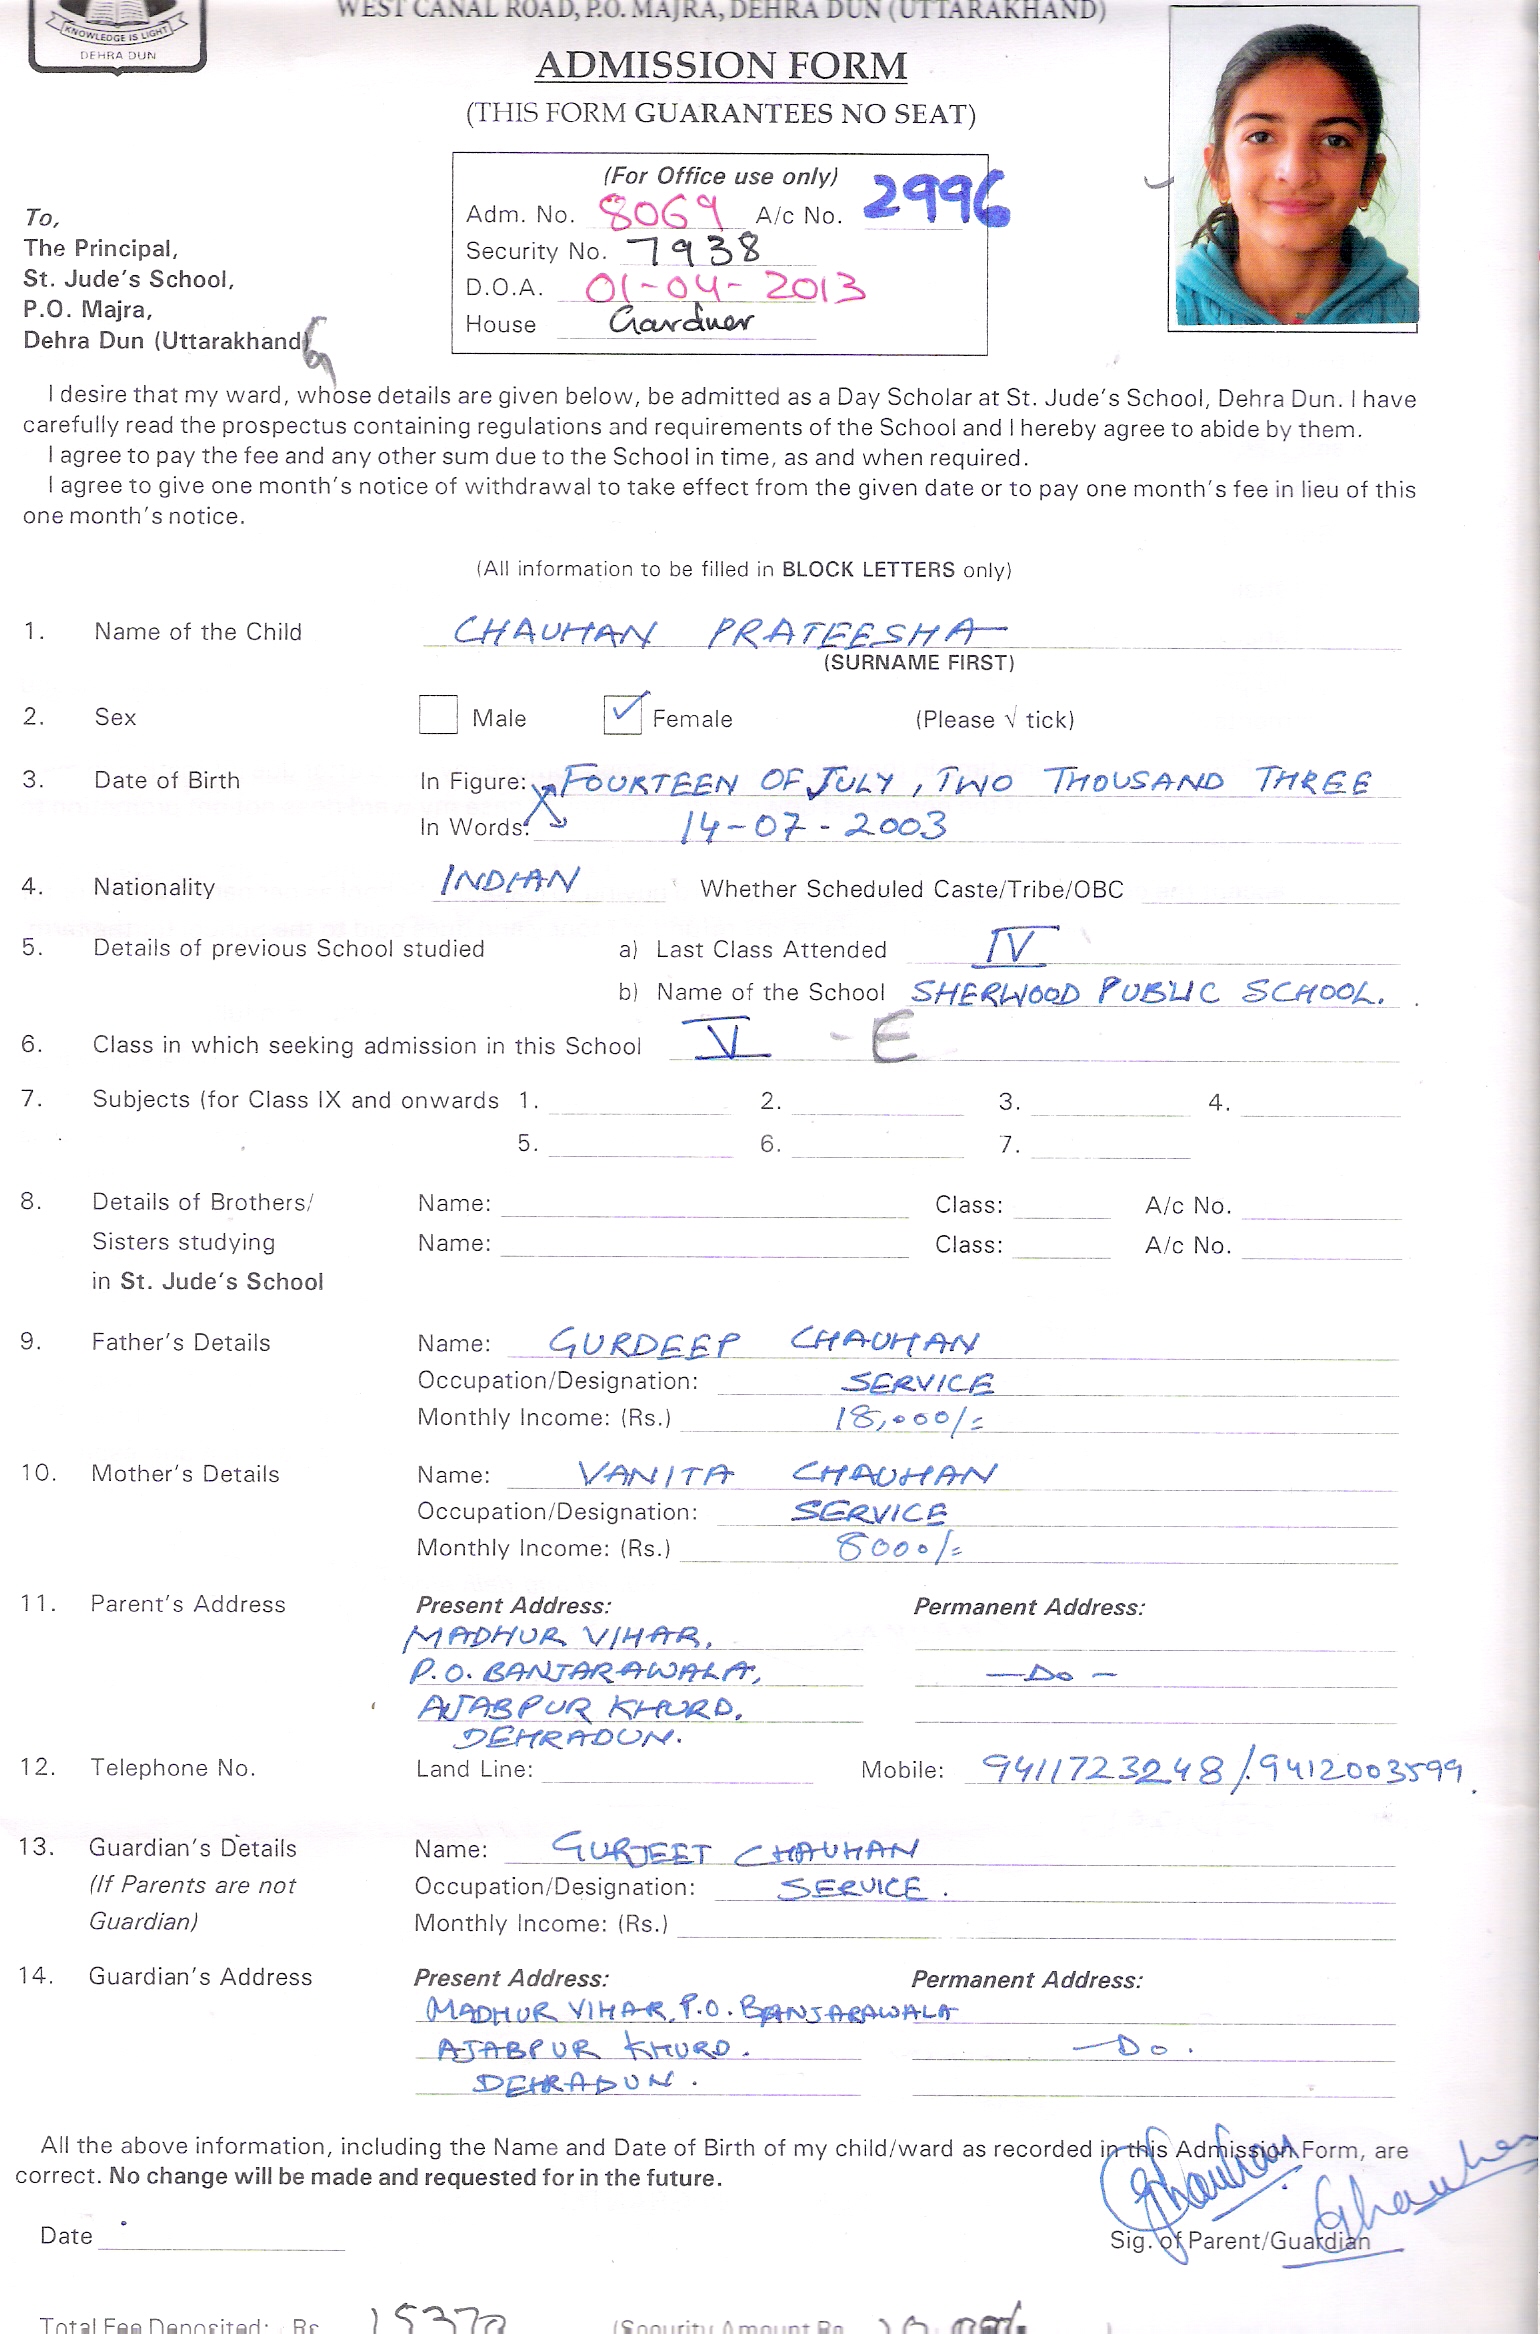 WEST CANAL ROAD, P.O. MAJRA, DEHRA DUN (UTTARAKHAND)
KNOWLEDGE IS LIGHT
DEHRA DUN
ADMISSION FORM
(THIS FORM GUARANTEES NO SEAT)
(For Office use only)
Adm. No. 8069 A/c No. 2996
Security No. 7938
D.O.A. 01-04-2013
House Gardner
To,
The Principal,
St. Jude's School,
P.O. Majra,
Dehra Dun (Uttarakhand)
I desire that my ward, whose details are given below, be admitted as a Day Scholar at St. Jude's School, Dehra Dun. I have
carefully read the prospectus containing regulations and requirements of the School and I hereby agree to abide by them.
I agree to pay the fee and any other sum due to the School in time, as and when required.
I agree to give one month's notice of withdrawal to take effect from the given date or to pay one month's fee in lieu of this
one month's notice.
(All information to be filled in BLOCK LETTERS only)
1. Name of the Child CHAUHAN PRATEESHA
(SURNAME FIRST)
2. Sex Male ✓ Female (Please √ tick)
3. Date of Birth In Figure: FOURTEEN OF JULY, TWO THOUSAND THREE
In Words: 14-07-2003
4. Nationality INDIAN Whether Scheduled Caste/Tribe/OBC
5. Details of previous School studied a) Last Class Attended IV
b) Name of the School SHERWOOD PUBLIC SCHOOL.
6. Class in which seeking admission in this School V - E
7. Subjects (for Class IX and onwards 1. 2. 3. 4.
5. 6. 7.
8. Details of Brothers/ Name: Class: A/c No.
Sisters studying Name: Class: A/c No.
in St. Jude's School
9. Father's Details Name: GURDEEP CHAUHAN
Occupation/Designation: SERVICE
Monthly Income: (Rs.) 18,000/=
10. Mother's Details Name: VANITA CHAUHAN
Occupation/Designation: SERVICE
Monthly Income: (Rs.) 8000/=
11. Parent's Address Present Address: Permanent Address:
MADHUR VIHAR,
P.O. BANJARAWALA, —Do—
AJABPUR KHURD,
DEHRADUN.
12. Telephone No. Land Line: Mobile: 9411723248/9412003599.
13. Guardian's Details Name: GURJEET CHAUHAN
(If Parents are not Occupation/Designation: SERVICE.
Guardian) Monthly Income: (Rs.)
14. Guardian's Address Present Address: Permanent Address:
MADHUR VIHAR, P.O. BANJARAWALA
AJABPUR KHURD. —Do.
DEHRADUN.
All the above information, including the Name and Date of Birth of my child/ward as recorded in this Admission Form, are
correct. No change will be made and requested for in the future.
GChauhan GChauhan
Date Sig. of Parent/Guardian
Total Fee Deposited: Rs 15370 (Security Amount Rs